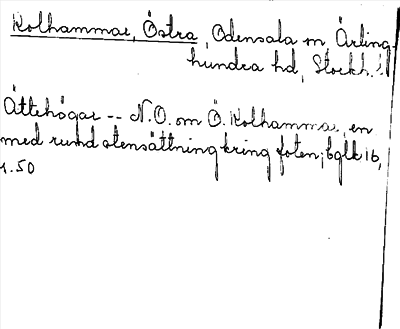 Kolhammar, Östra, Odensala sn, Ärling-
hundra hd, Stockh. l.
Ättehögar -- N.O. om Ö. Kolhammar, en
med rund stensättning kring foten; bglk 16,
s. 50